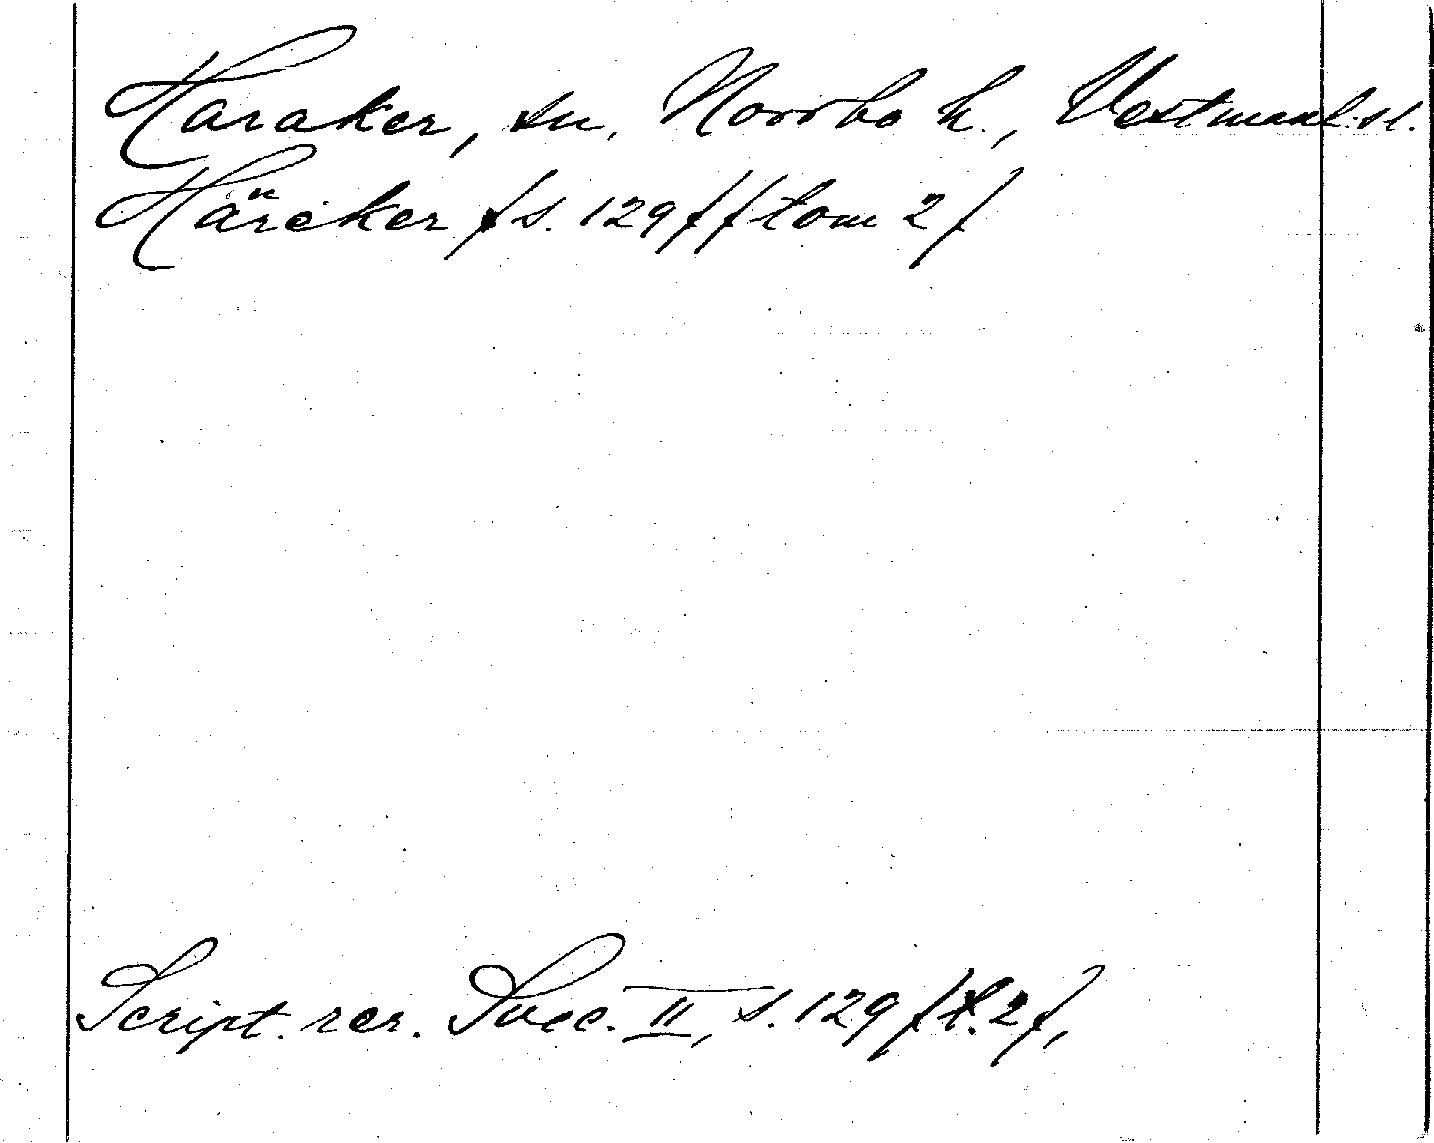 Haraker, sn, Norrbo h., Vestmanl. sl.
Härcker /s. 129/ /tom 2/
Script. rer. Svec. II, s. 129 /t. 2/,